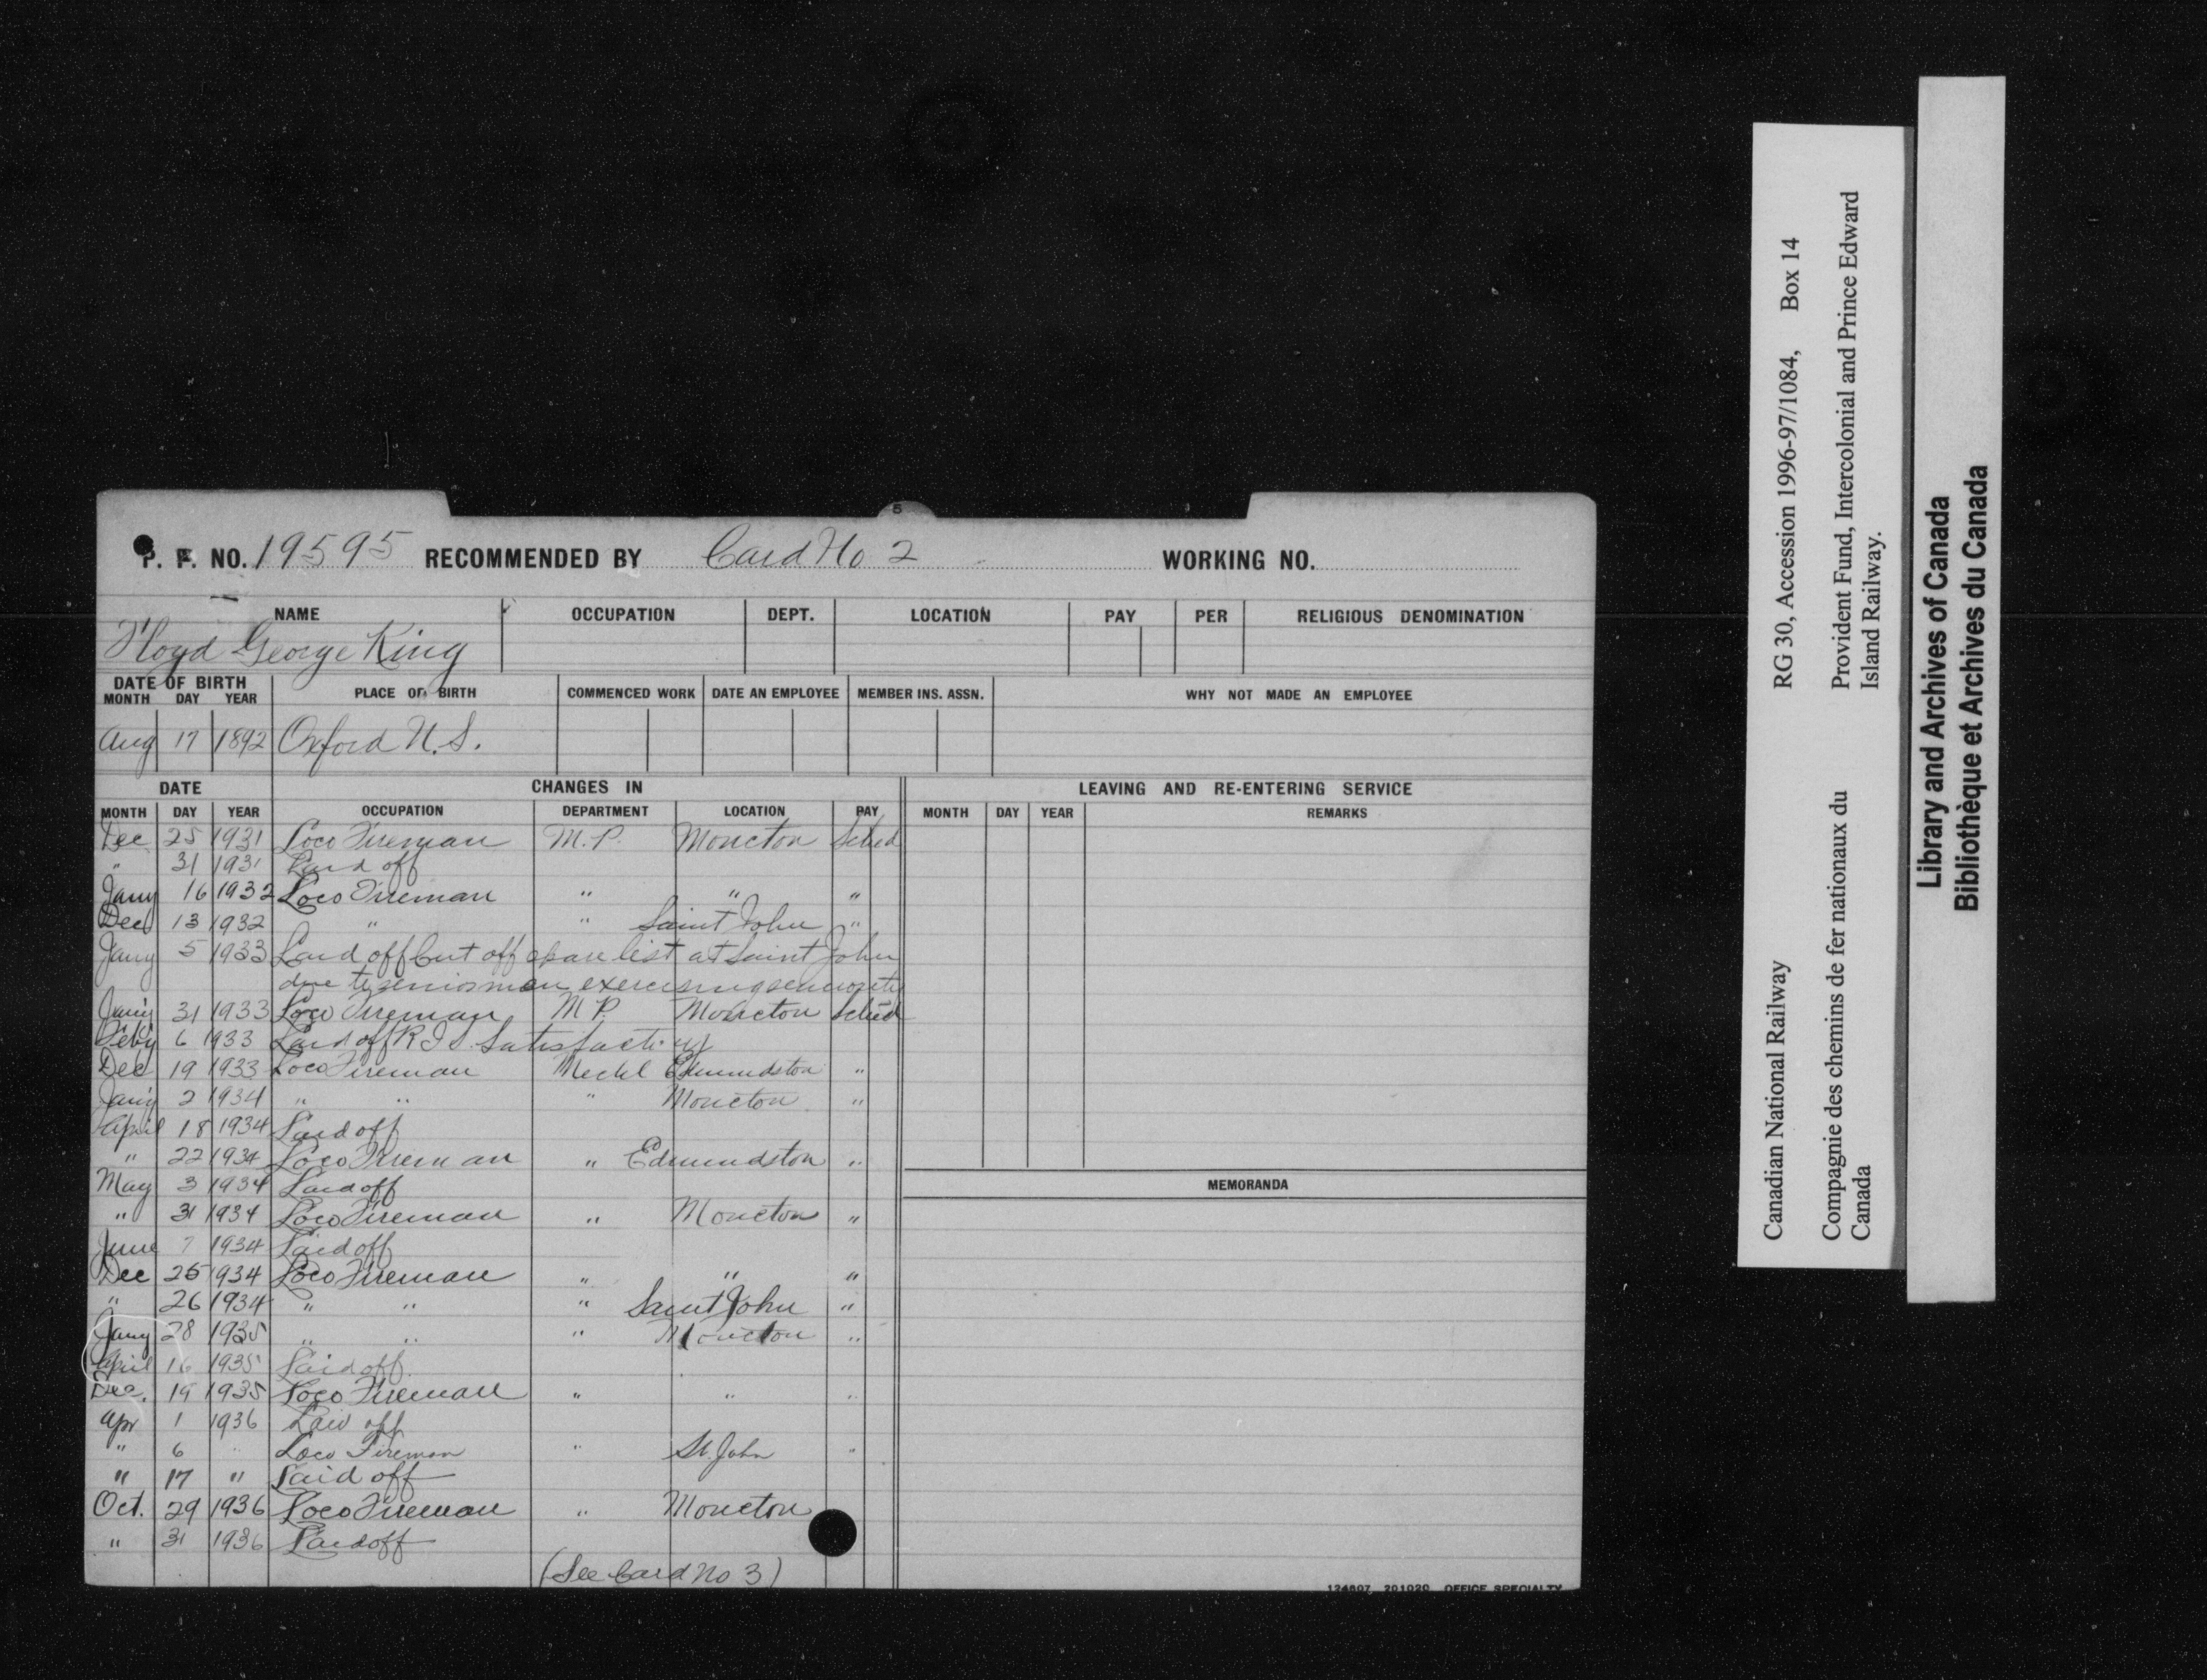 5
P. F. NO. 19595 RECOMMENDED BY Card No 2 WORKING NO.
NAME OCCUPATION DEPT. LOCATION PAY PER RELIGIOUS DENOMINATION
Floyd George King
DATE OF BIRTH
MONTH DAY YEAR PLACE OF BIRTH COMMENCED WORK DATE AN EMPLOYEE MEMBER INS. ASSN. WHY NOT MADE AN EMPLOYEE
Aug 17 1892 Oxford N.S.
DATE CHANGES IN LEAVING AND RE-ENTERING SERVICE
MONTH DAY YEAR OCCUPATION DEPARTMENT LOCATION PAY MONTH DAY YEAR REMARKS
Dec 25 1931 Loco Fireman M.P. Moncton Sched
" 31 1931 Laid off
Jany 16 1932 Loco Fireman " " "
Dec 13 1932 " " Saint John "
Jany 5 1933 Laid off Cut off spare list at Saint John
due to senior man exercising seniority
Jany 31 1933 Loco Fireman M.P. Moncton Sched
Feby 6 1933 Laid off R.I.S. Satisfactory
Dec 19 1933 Loco Fireman Mechl Edmundston "
Jany 2 1934 " " " Moncton "
April 18 1934 Laid off
" 22 1934 Loco Fireman " Edmundston "
May 3 1934 Laid off
" 31 1934 Loco Fireman " Moncton "
June 7 1934 Laid off
Dec 25 1934 Loco Fireman " " "
" 26 1934 " " " Saint John "
Jany 28 1935 " " " Moncton "
April 16 1935 Laid off
Dec. 19 1935 Loco Fireman " " "
Apr 1 1936 Laid off
" 6 " Loco Fireman " St. John "
" 17 " Laid off
Oct. 29 1936 Loco Fireman " Moncton
" 31 1936 Laid off
(See Card No 3)
MEMORANDA
124607 201020 OFFICE SPECIALTY
Canadian National Railway RG 30, Accession 1996-97/1084, Box 14
Compagnie des chemins de fer nationaux du Canada
Provident Fund, Intercolonial and Prince Edward
Island Railway.
Library and Archives of Canada
Bibliothèque et Archives du Canada